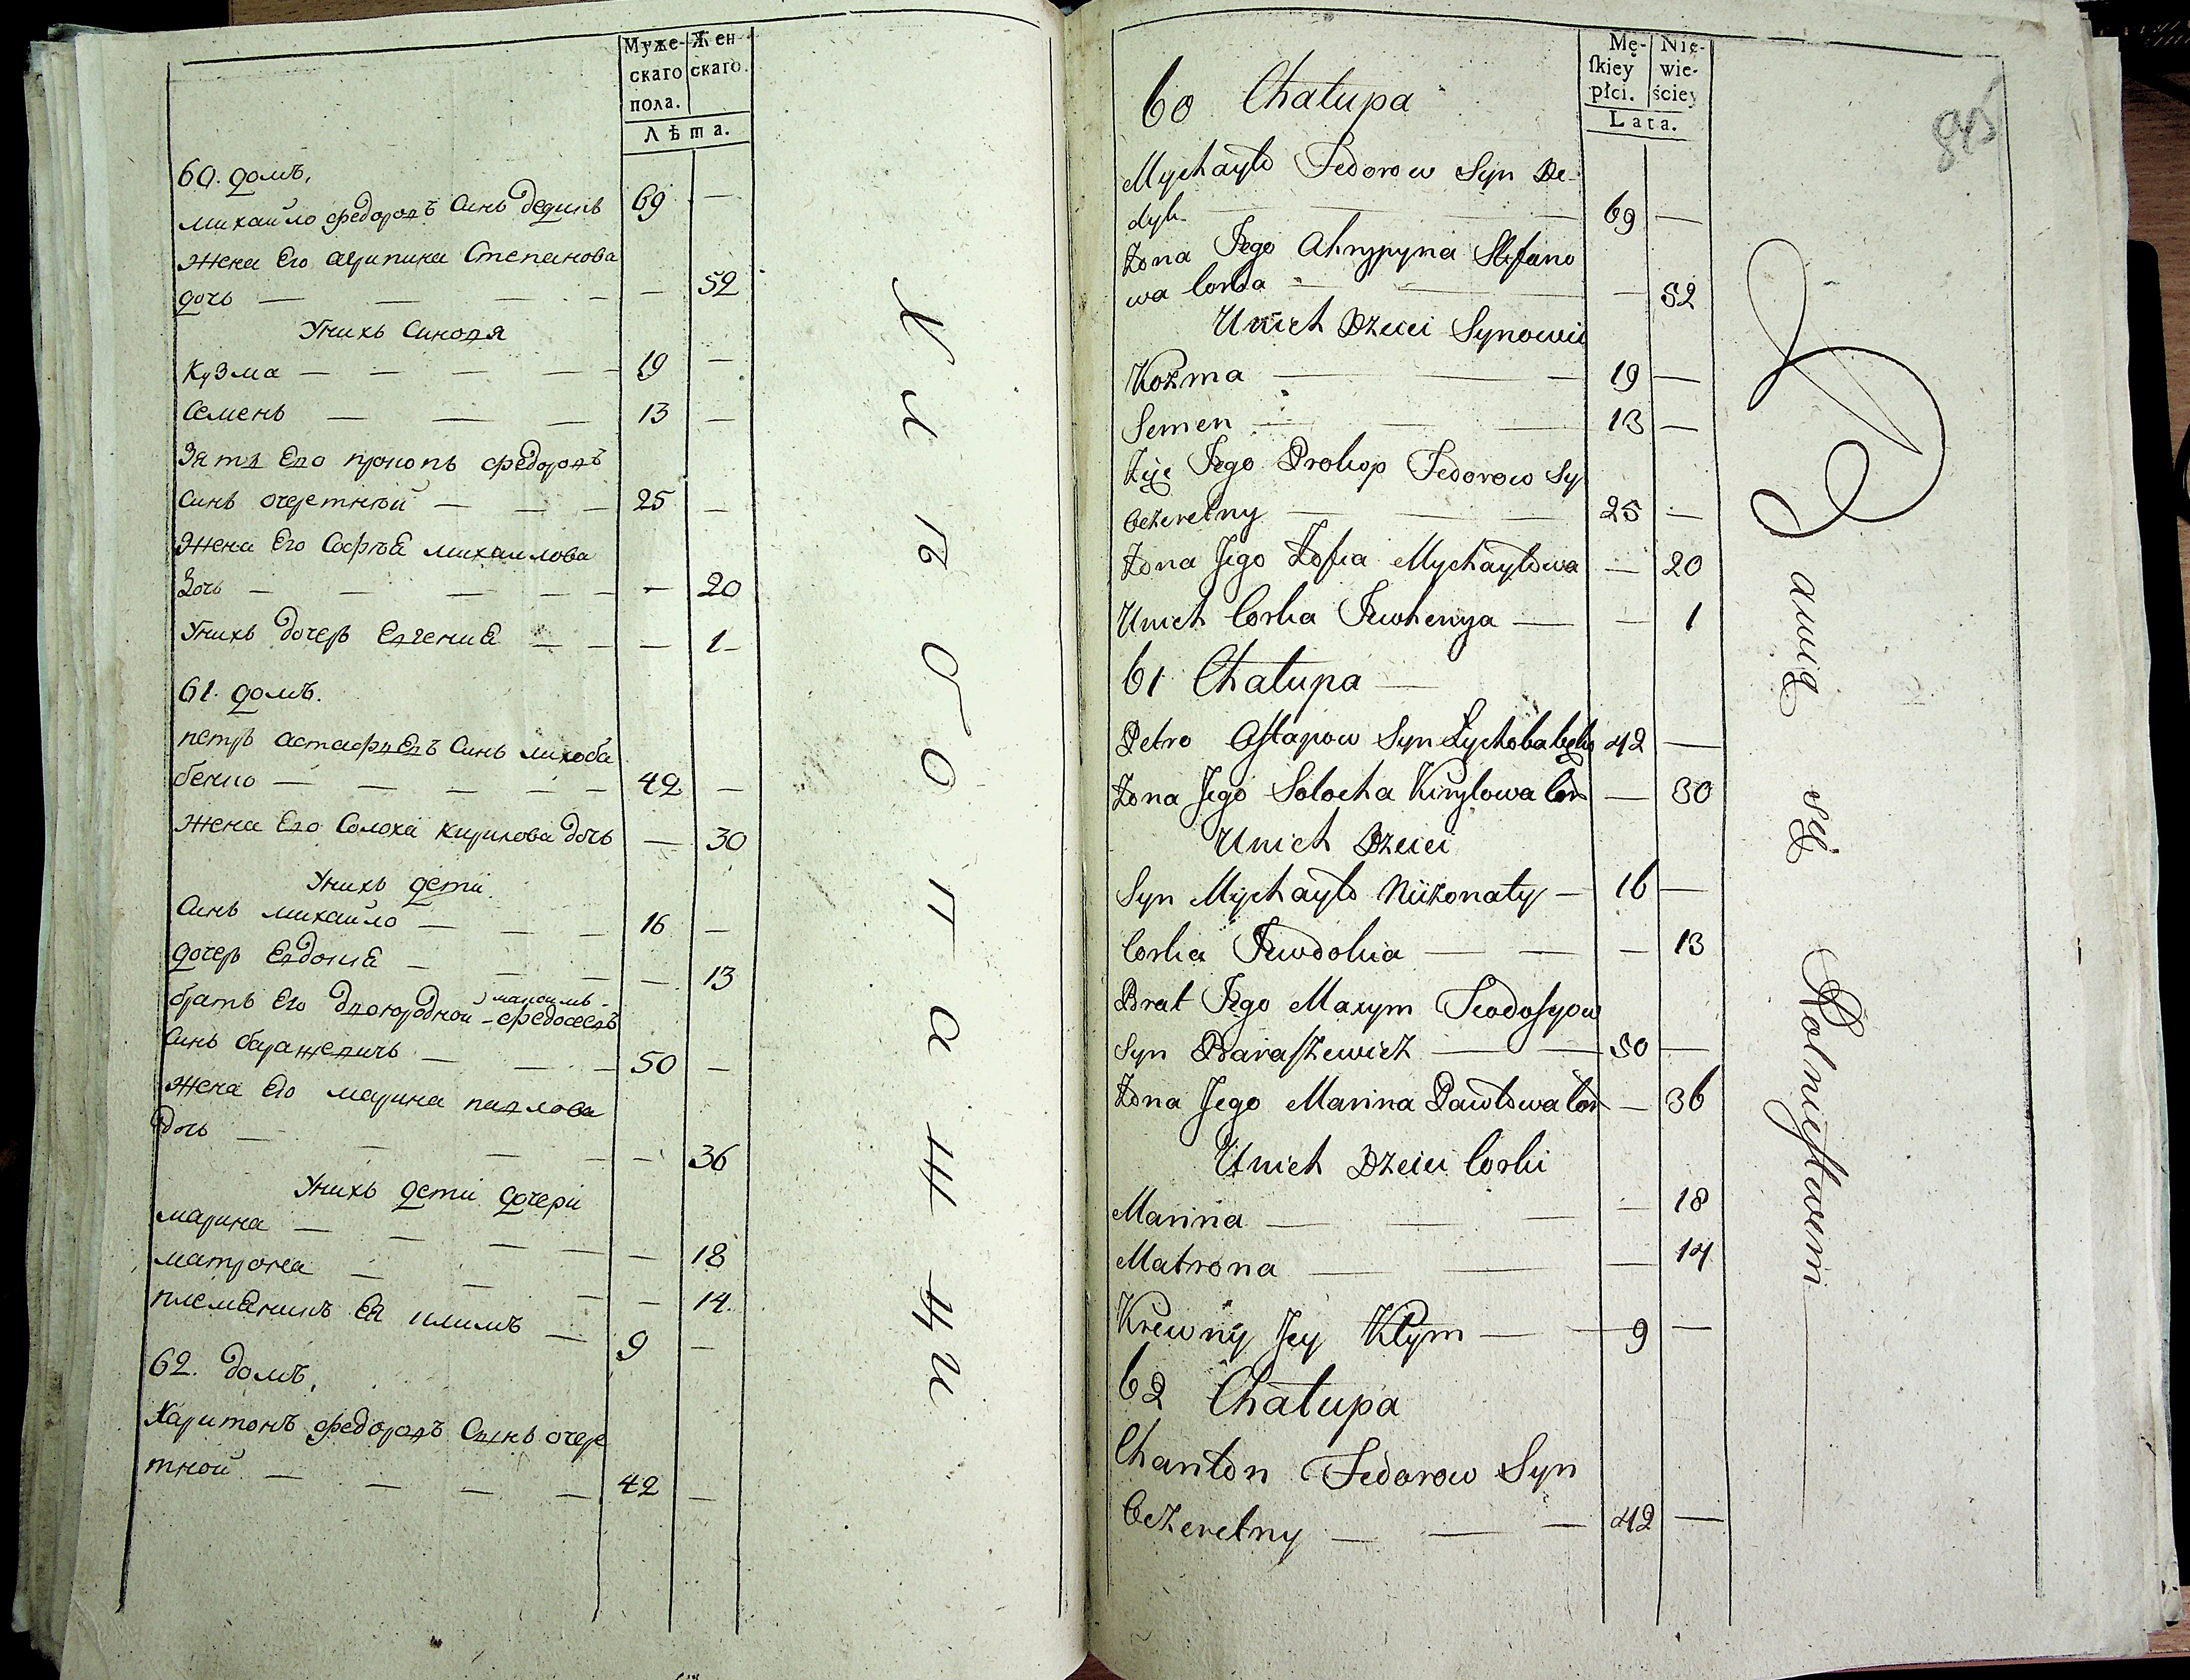 Муже- Жен
скаго скаго.
пола.
Лѣта.
60. домъ,
михайло федоровъ Синъ дедикъ 69 —
жена Его агрипина Степанова
дочь — — — — — 52
Унихъ Синовя
Кузма — — — — 19 —
Семенъ — — — 13 —
Зять Его прокопъ федоровъ
Синъ очеретной — — — 25 —
жена Его Софъя михаилова
дочь — — — — — — 20
Унихъ дочеръ Евгения — — — 1 —
61. домъ.
петръ астафъевъ Синъ лихоба
бенко — — — — — 42 —
жена Его Солоха кирилова дочъ — 30
Унихъ дети
Синъ михайло — — — 16 —
дочеръ Евдокия — — — — 13
максимъ
братъ Его двоюродной — федосеевъ
Синъ барашевичъ — — — 50 —
жена Его марина павлова
дочь — — — — — 36
Унихъ дети дочери
марина — — — — — 18
матрона — — — — 14.
племяникъ Ея климъ — 9 —
62. домъ,
Харитонъ федоровъ Сынъ очере
тной — — — — 42 —
Хлѣбопашци
Mę- Nie-
ſkiey wie-
płci. ściey
Lata.
845
60 Chałupa
Mychayło Fedorow Syn De-
dyk — — — 69 —
Żona Jego Ahrypyna Stefano
wa Corka — — — 52
Unich Dzieci Synowie
Kozma — — — 19 —
Semen — — — 13 —
Zięc Jego Prokop Fedorow Sy
Oczeretny — — — 25 —
Żona Jego Zofia Mychayłowa — 20
Unich Corka Jewhenya — — 1
61 Chałupa —
Petro Oſtapow Syn Łychobabęko 42 —
Żona Jego Solocha Kiryłowa Cor — 30
Unich Dzieci
Syn Mychayło Niżonaty — 16 —
Corka Jewdokia — — — 13
Brat Jego Maxym Teodoſyow
Syn Baraſzewicz — — 50 —
Żona Jego Marina Pawłowa Cor — 36
Unich Dzieci Corki
Marina — — — — 18
Matrona — — — — 14
Krewny Jey Kłym — — 9 —
62 Chałupa
Chariton Fedorow Syn
Oczeretny — — — 42 —
Bawią się Rolnictwem —